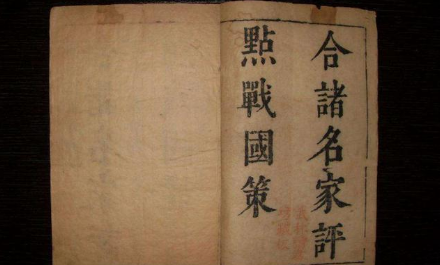 合諸名家評
點戰國策